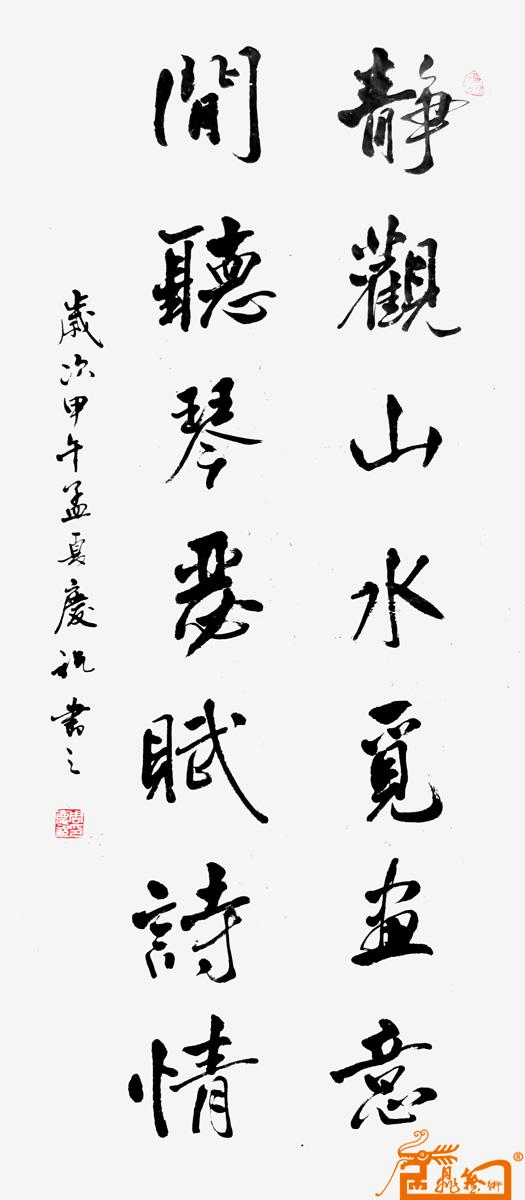 靜觀山水覓画意
閒聽琴瑟賦詩情
歲次甲午孟夏慶祝書之